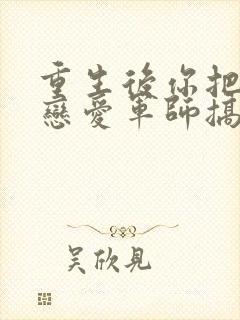 重生後你把
戀愛軍師搞
吳欣見